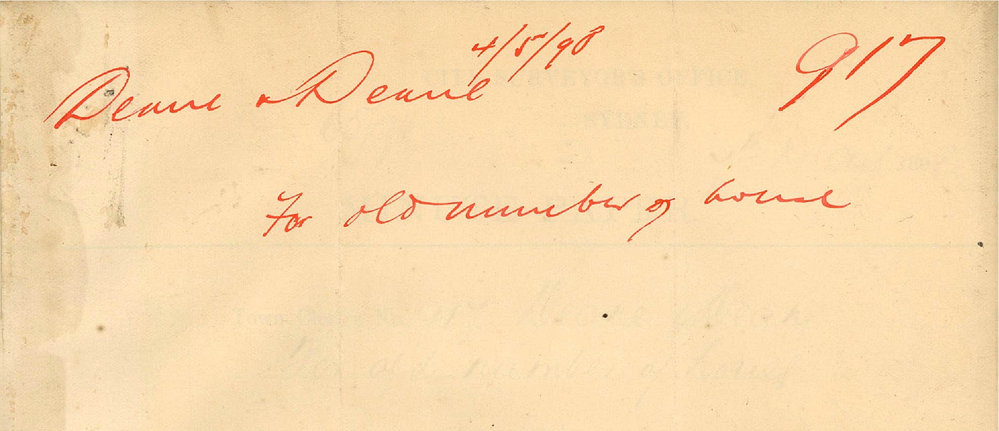 4/5/98
Deane & Deane 917
For old number of house